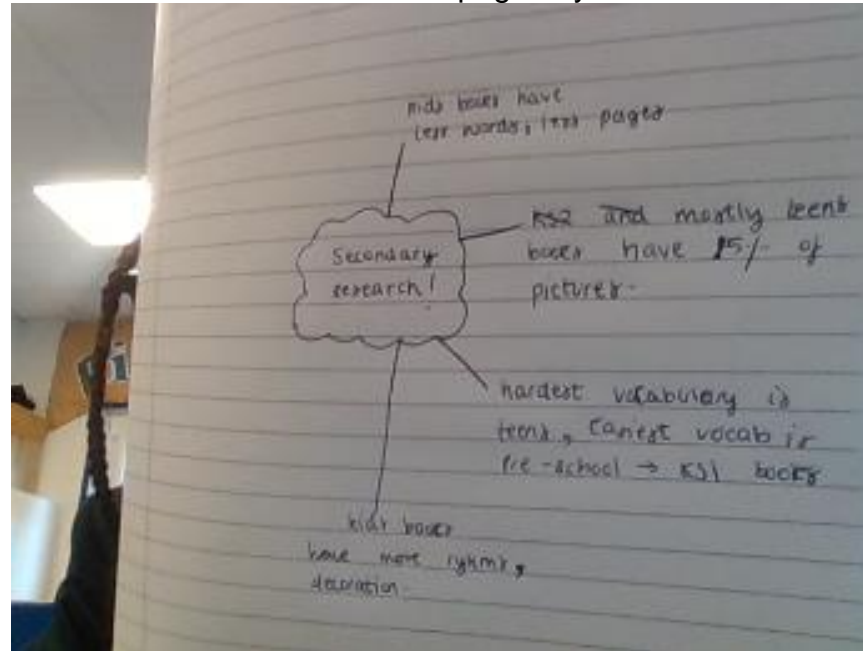 kids books have
less words, less pages
Secondary
research!
KS2 and mostly teens
books have 15% of
pictures.
hardest vocabulary is
teens, easiest vocab is
Pre-school → KS1 books
kids books
have more
decoration